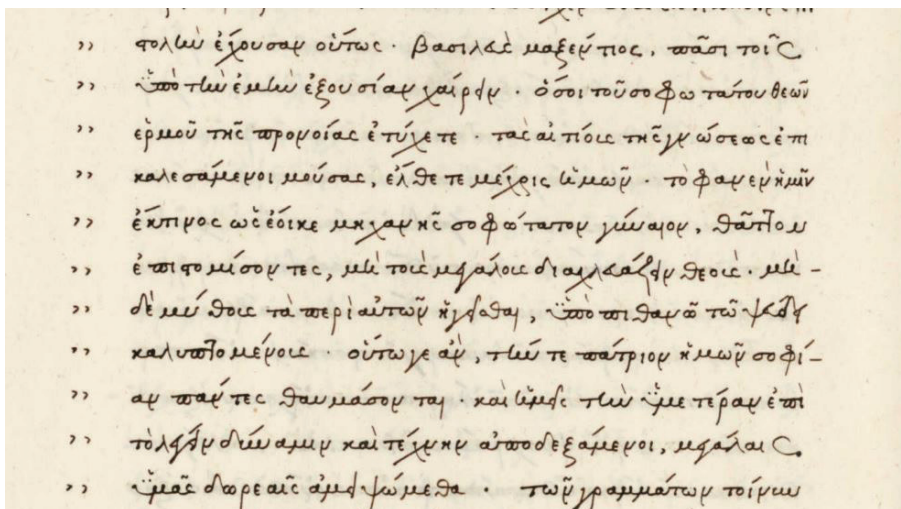 ,, τολὴν ἔχουσαν οὕτως· βασιλεὺς μαξέντιος, πᾶσι τοῖς
,, ὑπὸ τὴν ἐμὴν ἐξουσίαν χαίρειν· ὅσοι τοῦ σοφωτάτου θεῶν
,, ἑρμοῦ τῆς προνοίας ἐτύχετε· τὰς τῆς γνώσεως ἐπι
,, καλεσάμενοι μούσας, ἔλθετε μέχρις ἡμῶν· τὸ φανὲν ἡμῖν
,, ἔκ τινος ὡς ἔοικε μηχανῆς σοφώτατον γύναιον, θᾶττον
,, ἐπιστομίσοντες, μὴ τοῖς μεγάλοις διαχλευάζειν θεοῖς· μὴ-
,, δὲ μύθοις τὰ περὶ αὐτῶν ἡγεῖσθαι, ὑπὸ πιθανῶ τῶ ψεύδει
,, καλυπτομένοις· οὕτω γε ἂν, τήν τε πάτριον ἡμῶν σοφί-
,, αν πάντες θαυμάσονται· καὶ ἡμεῖς τὴν ὑμετέραν ἐπὶ
,, τὸ λέγειν δύναμιν καὶ τέχνην ἀποδεξάμενοι, μεγάλαις
,, ὑμᾶς δωρεαῖς ἀμειψώμεθα· τῶν γραμμάτων τοίνυν